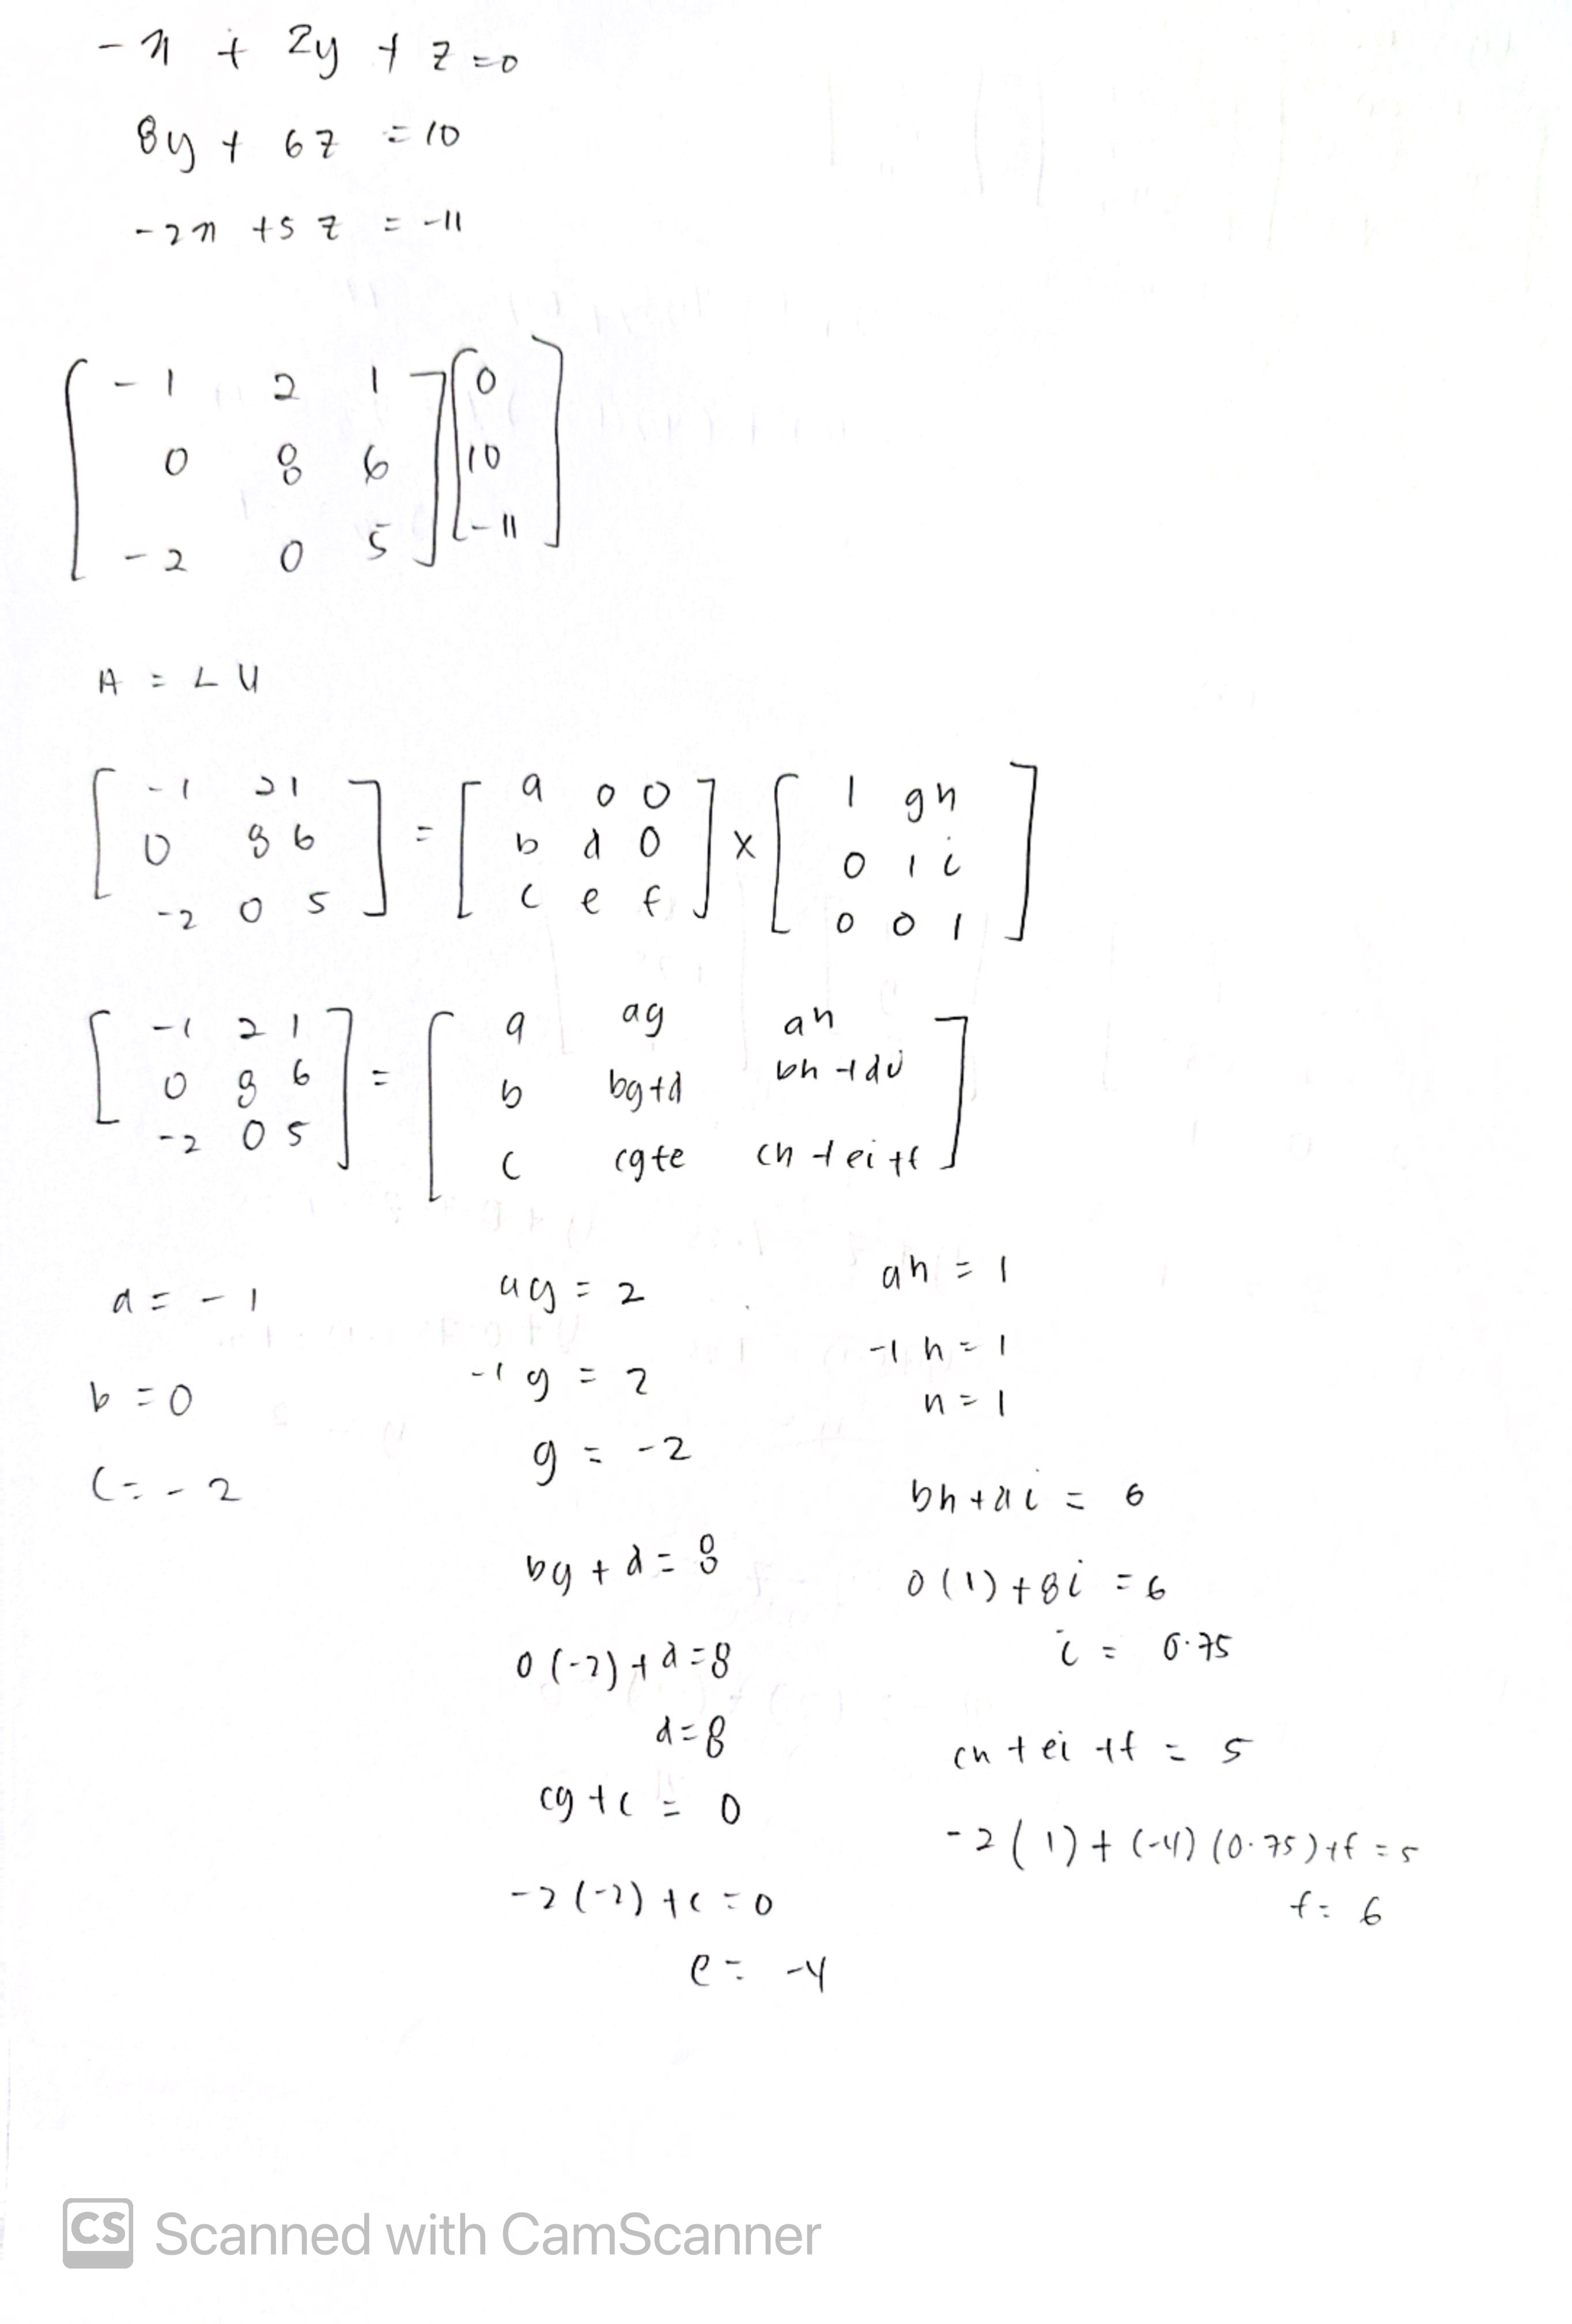 -x + 2y + z = 0
8y + 6z = 10
-2x + 5z = -11
[ -1 2 1 ] [ 0 ]
[ 0 8 6 ] [ 10 ]
[ -2 0 5 ] [ -11 ]
A = LU
[ -1 2 1 ] = [ a 0 0 ] x [ 1 g h ]
[ 0 8 6 ] [ b d 0 ] [ 0 1 i ]
[ -2 0 5 ] [ c e f ] [ 0 0 1 ]
[ -1 2 1 ] = [ a ag ah ]
[ 0 8 6 ] [ b bg+d bh+di ]
[ -2 0 5 ] [ c cg+e ch+ei+f ]
a = -1
b = 0
c = -2
ag = 2
-1g = 2
g = -2
bg + d = 8
0(-2) + d = 8
d = 8
cg + e = 0
-2(-2) + e = 0
e = -4
ah = 1
-1h = 1
h = 1
bh + di = 6
0(1) + 8i = 6
i = 0.75
ch + ei + f = 5
-2(1) + (-4)(0.75) + f = 5
f = 6
CS Scanned with CamScanner